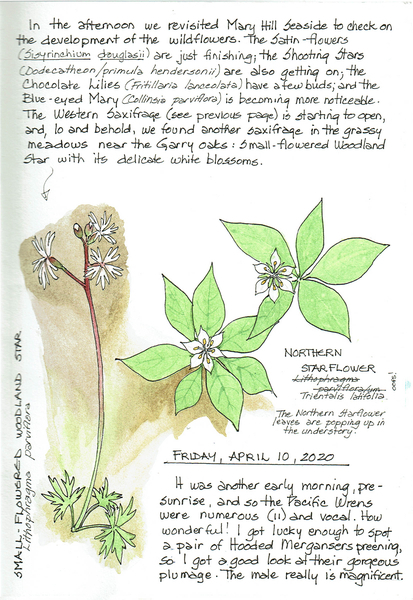 In the afternoon we revisited Mary Hill Seaside to check on
the development of the wildflowers. The Satin-flowers
(Sisyrinchium douglasii) are just finishing; the Shooting Stars
(Dodecatheon/primula hendersonii) are also getting on; the
Chocolate Lilies (Fritillaria lanceolata) have a few buds; and the
Blue-eyed Mary (Collinsia parviflora) is becoming more noticeable.
The Western Saxifrage (see previous page) is starting to open,
and, lo and behold, we found another saxifrage in the grassy
meadows near the Garry oaks: Small-flowered Woodland
Star with its delicate white blossoms.
SMALL-FLOWERED WOODLAND STAR
Lithophragma parviflora
NORTHERN
STARFLOWER
Lithophragma
parviflora/um
Trientalis latifolia.
OOPS!
The Northern Starflower
leaves are popping up in
the understory.
FRIDAY, APRIL 10, 2020
It was another early morning, pre-
sunrise, and so the Pacific Wrens
were numerous (11) and vocal. How
wonderful! I got lucky enough to spot
a pair of Hooded Mergansers preening,
so I got a good look at their gorgeous
plumage. The male really is magnificent.